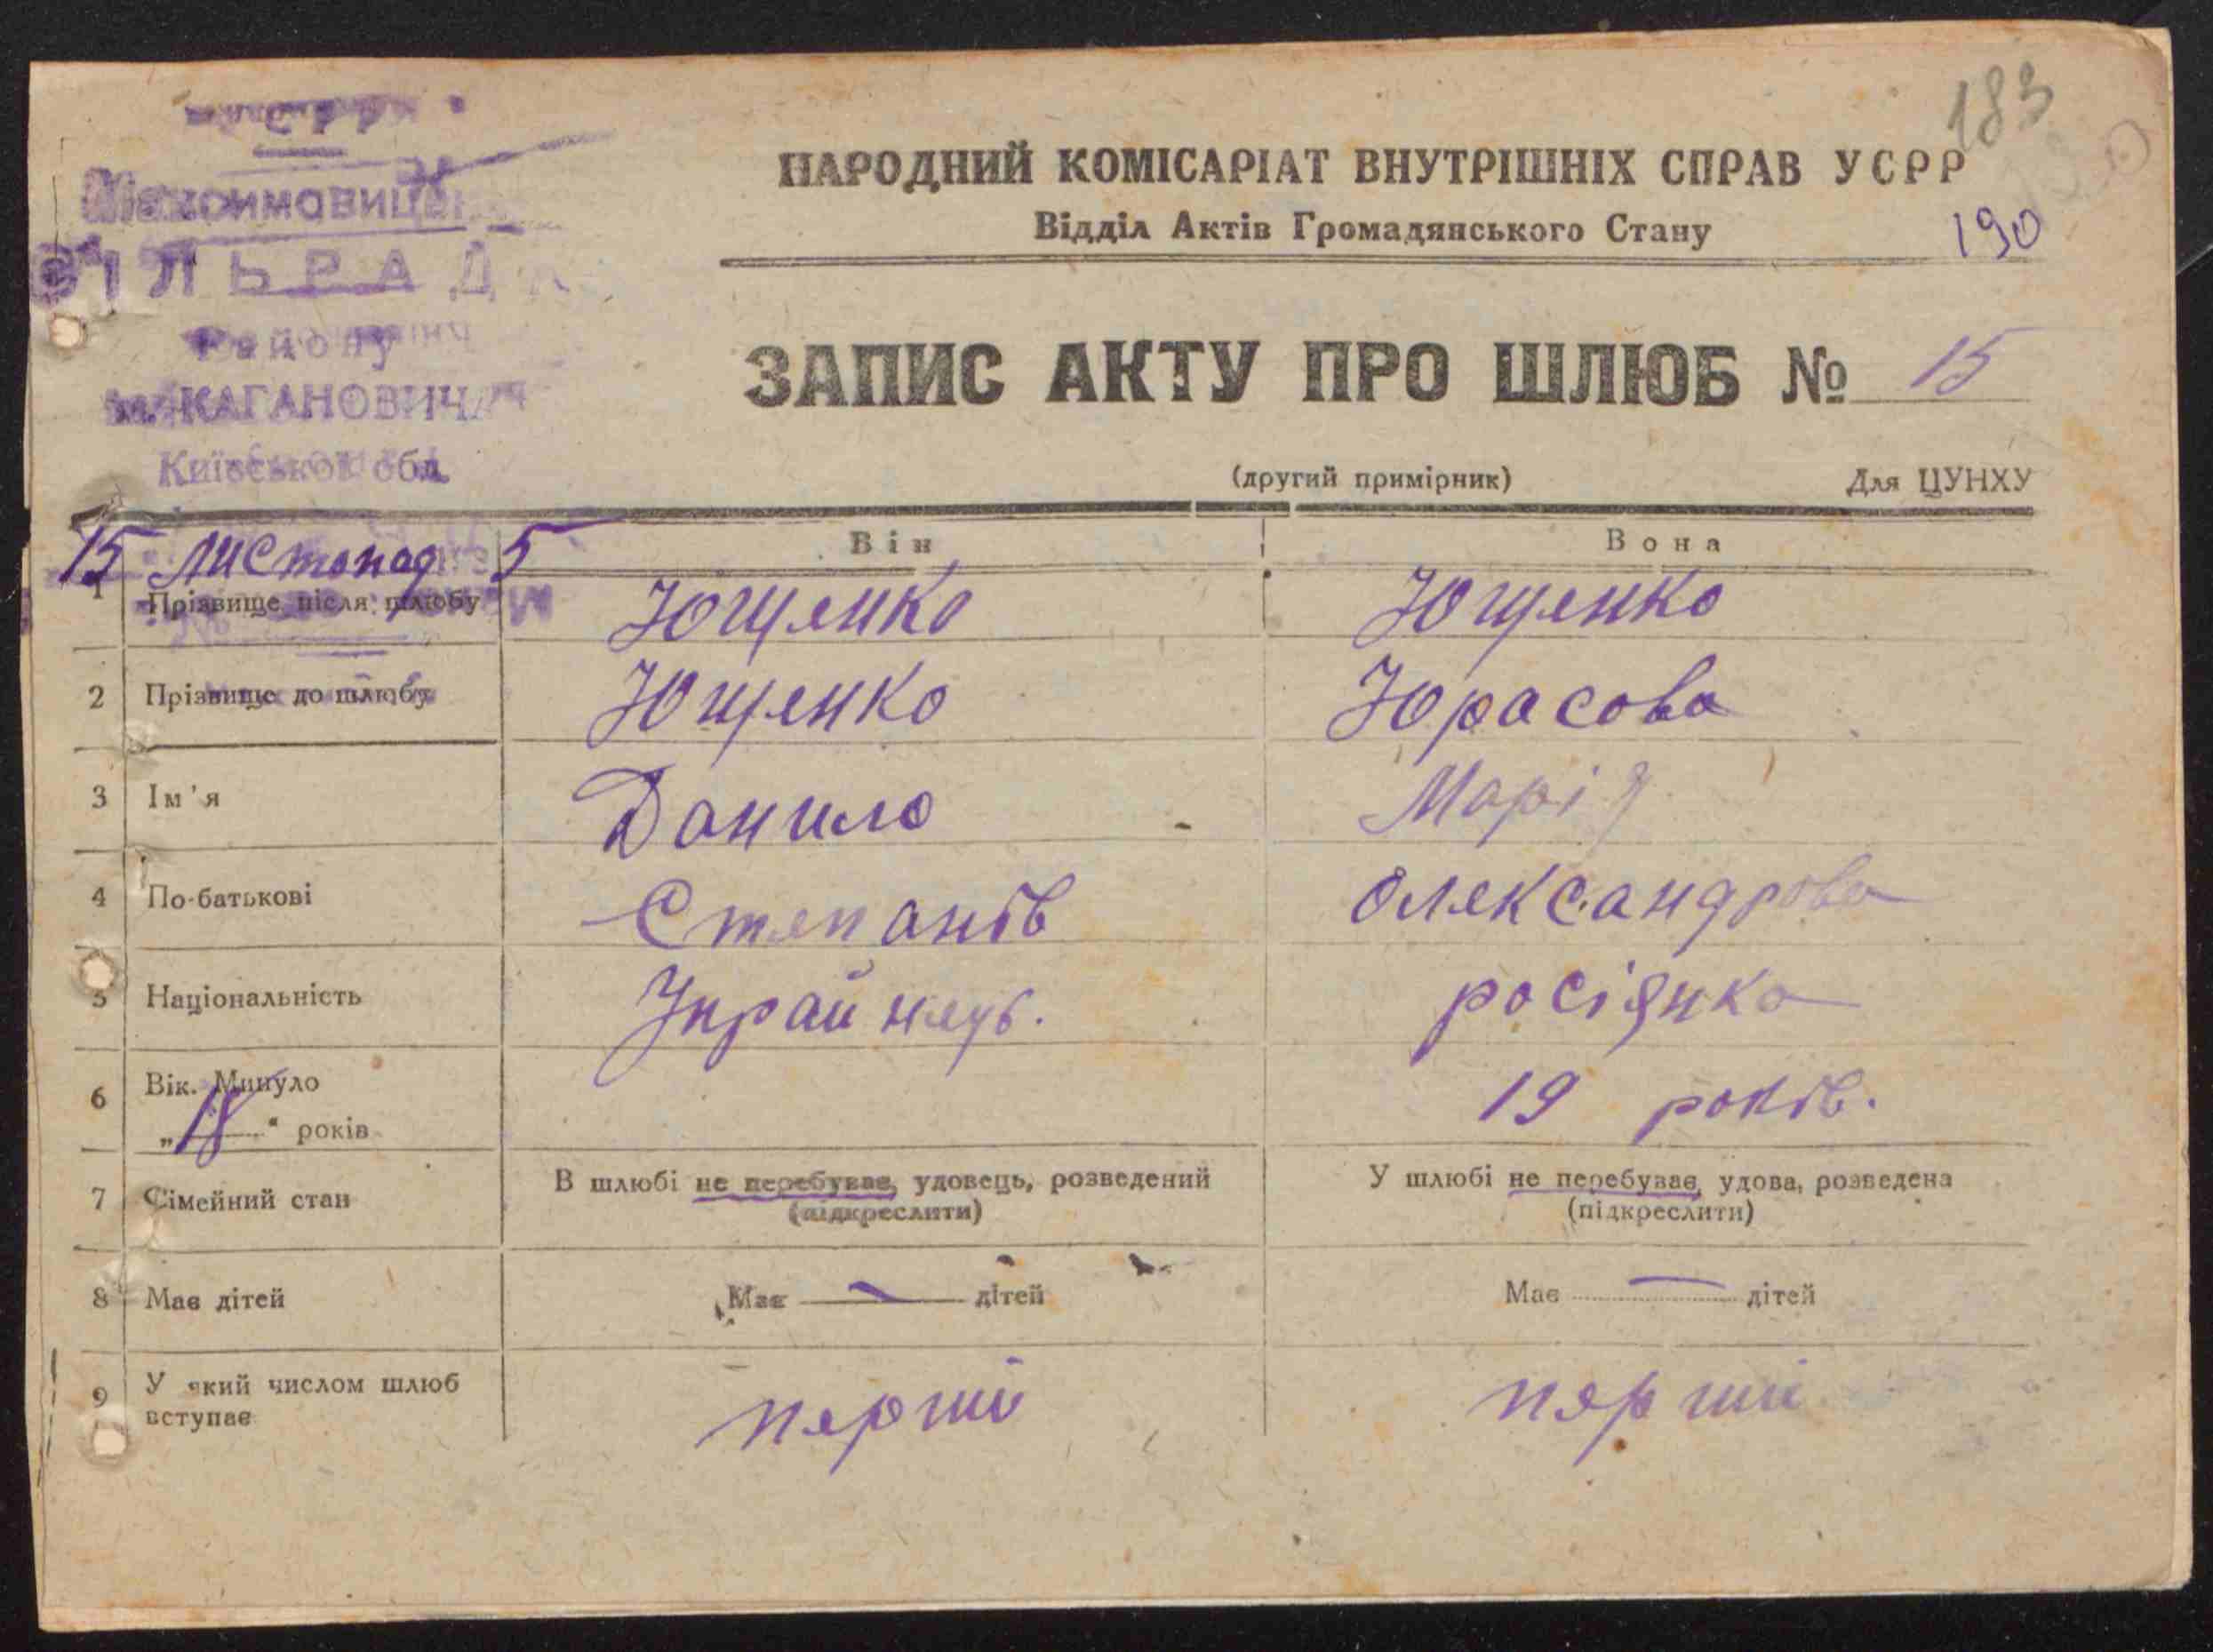 183
НАРОДНИЙ КОМІСАРІАТ ВНУТРІШНІХ СПРАВ УСРР
Відділ Актів Громадянського Стану
190
СРР
СІЛЬРАДА
Району
ім. КАГАНОВИЧА
Київської обл.
ЗАПИС АКТУ ПРО ШЛЮБ № 15
(другий примірник) Для ЦУНХУ
15 листопад 5
Він Вона
1 Прізвище після шлюбу Ющенко Ющенко
2 Прізвище до шлюбу Ющенко Юрасова
3 Ім'я Данило Марія
4 По-батькові Степанів Олександрова
5 Національність Украйнець. росіянка
6 Вік. Минуло
„18“ років 19 років.
7 Сімейний стан В шлюбі не перебуває, удовець, розведений (підкреслити) У шлюбі не перебуває, удова, розведена (підкреслити)
8 Має дітей Має — дітей Має — дітей
9 У який числом шлюб вступає перший перши